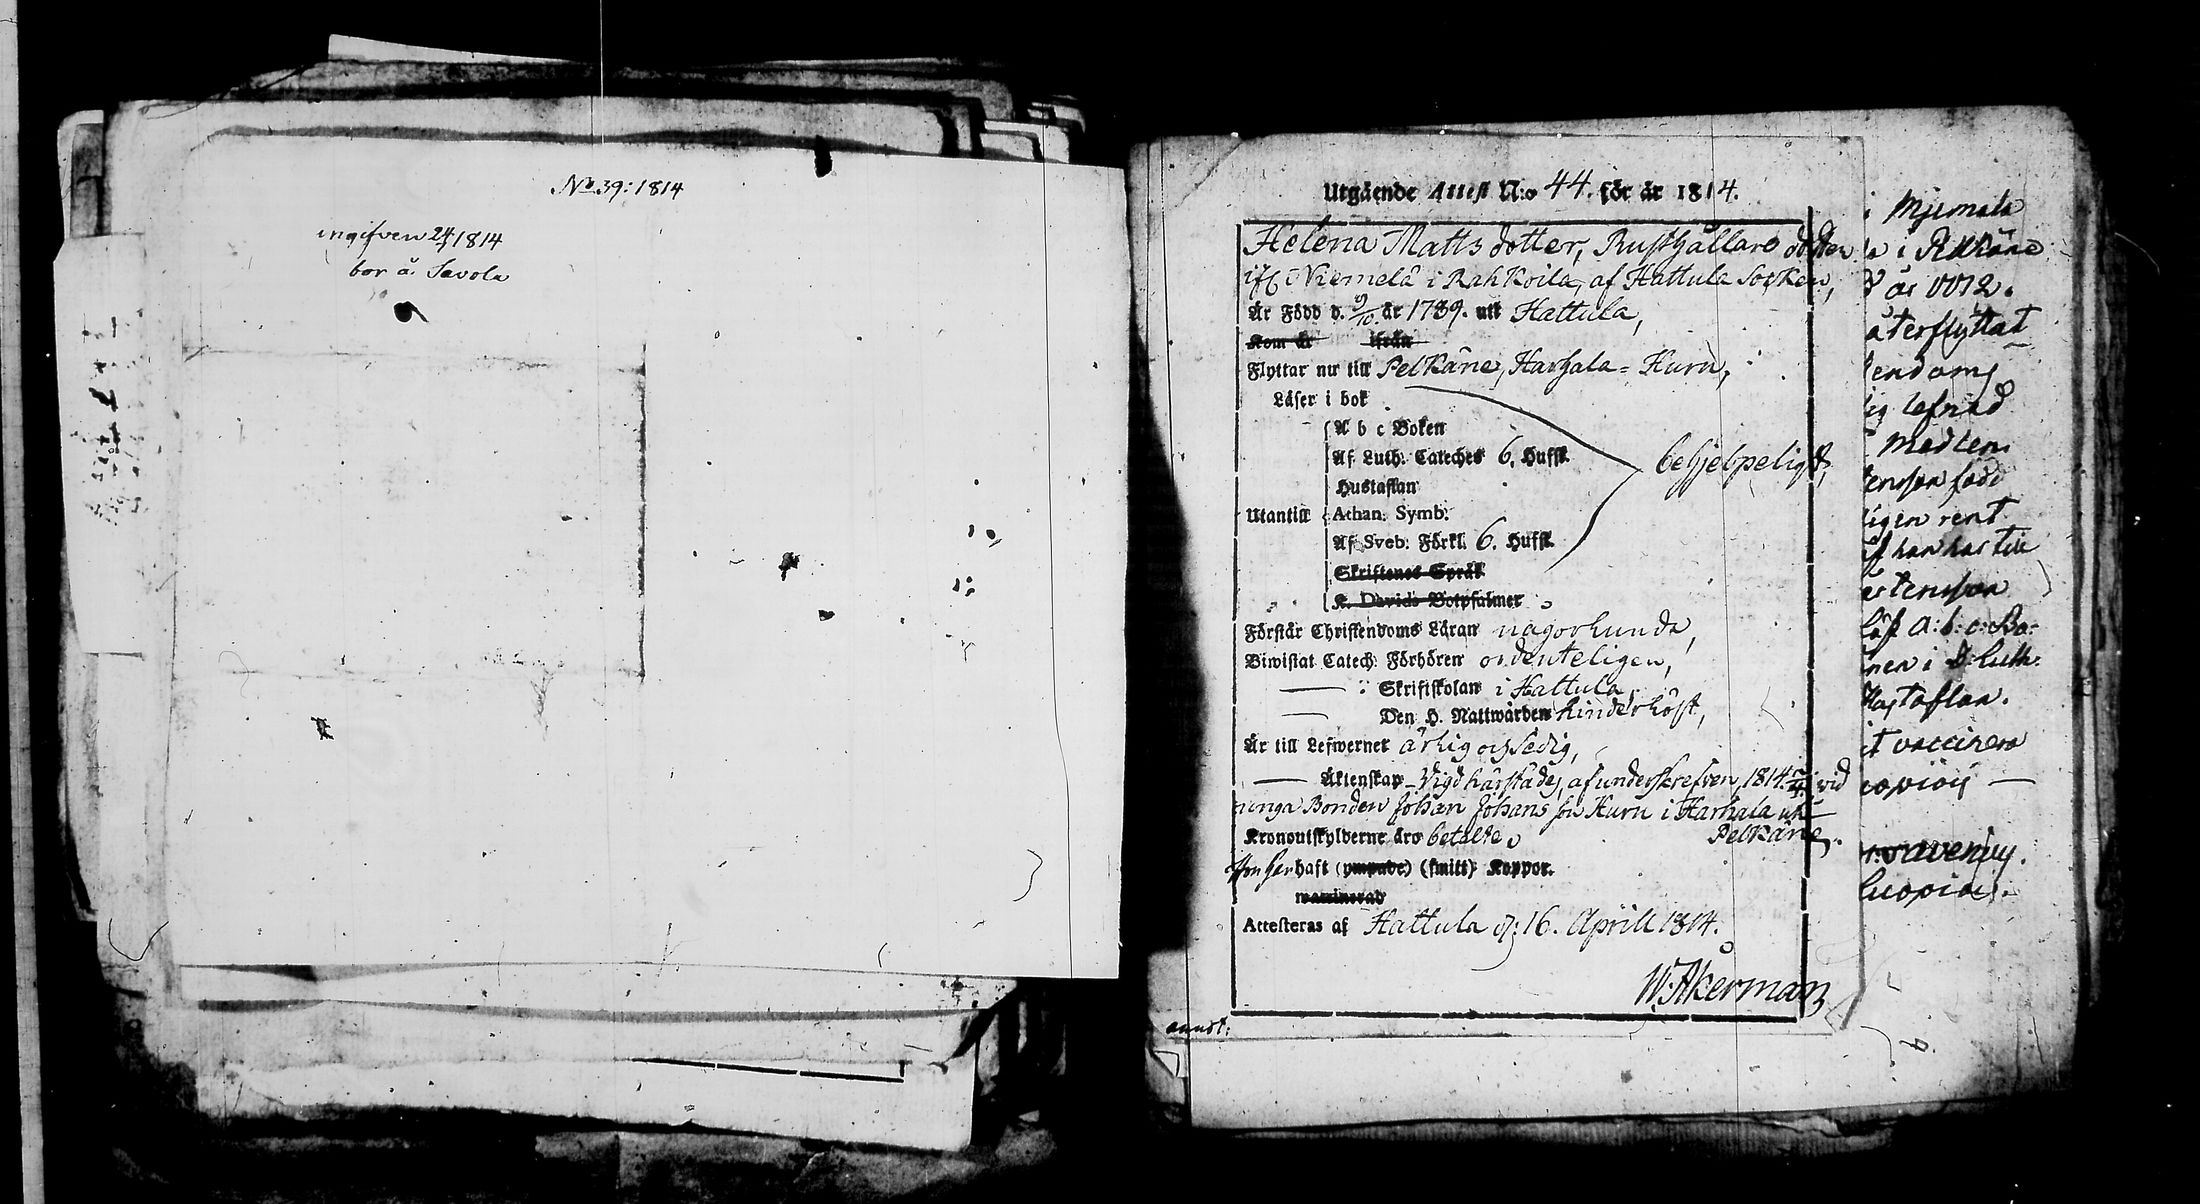 No 39: 1814
ingifven 24/4 1814
bor å Savola
Utgående Attest N:o 44. för år 1814.
Helena Matts dotter, Rusthållare dotter
ifr Niemelä i Rahkoila, af Hattula Socken,
Är Född d. 9/10 år 1789. uti Hattula,
Kom år ifrån
Flyttar nu till Pelkäne, Harhala-Huru,
Läser i bok
A b c Boken
Af Luth: Cateches 6. Hufst.
behjelpeligt,
Hustaflan
Utantill Athan: Symb:
Af Sveb: Förkl. 6. Hufst.
Skriftenes Språk
K. Davids Botpsalmer
Förstår Christendoms Läran någorlunda,
Biwistat Catech: Förhören ordenteligen,
— : Skriftskolan i Hattula,
— Den H. Nattwården sinderhöst,
Är till Lefwernet ärlig och Sedig,
— Äktenskap Vigd härstädes, af underskrefven, 1814 vid
unga Bonden Johan Johans son Huru i Harhala uti
Kronoutskylderne äro betalte. Pelkäne.
Hon har haft (ympade) (smitt) Koppor.
waccinerad
Attesteras af Hattula d: 16. Aprill 1814.
W: Åkerman
i Mjemala
i Pelkäne
år
återflyttat
lefnad
Med
född
rent
han har
läst A: b: c: Bo-
nen i D: Luth:
Hustaflan.
vaccinera